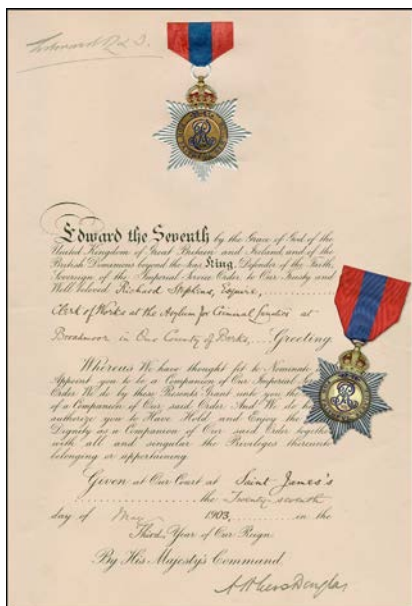 Edward R & I.
Edward the Seventh by the Grace of God of the
United Kingdom of Great Britain and Ireland, and of the
British Dominions beyond the Seas, King, Defender of the Faith,
Sovereign of the Imperial Service Order, to Our Trusty and
Well beloved Richard Stephens, Esquire,
Clerk of Works at the Asylum for Criminal Lunatics at
Broadmoor in Our County of Berks, Greeting
Whereas We have thought fit to Nominate
Appoint you to be a Companion of Our Imperial
Order We do by these Presents Grant unto you the
of a Companion of Our said Order And We do
authorize you to Have Hold and Enjoy the
Dignity as a Companion of Our said Order
with all and singular the Privileges thereunto
belonging or appertaining.
Given at Our Court at Saint James's
the Twenty seventh
day of May 1903. in the
Third Year of Our Reign.
By His Majesty's Command.
A Akers Douglas